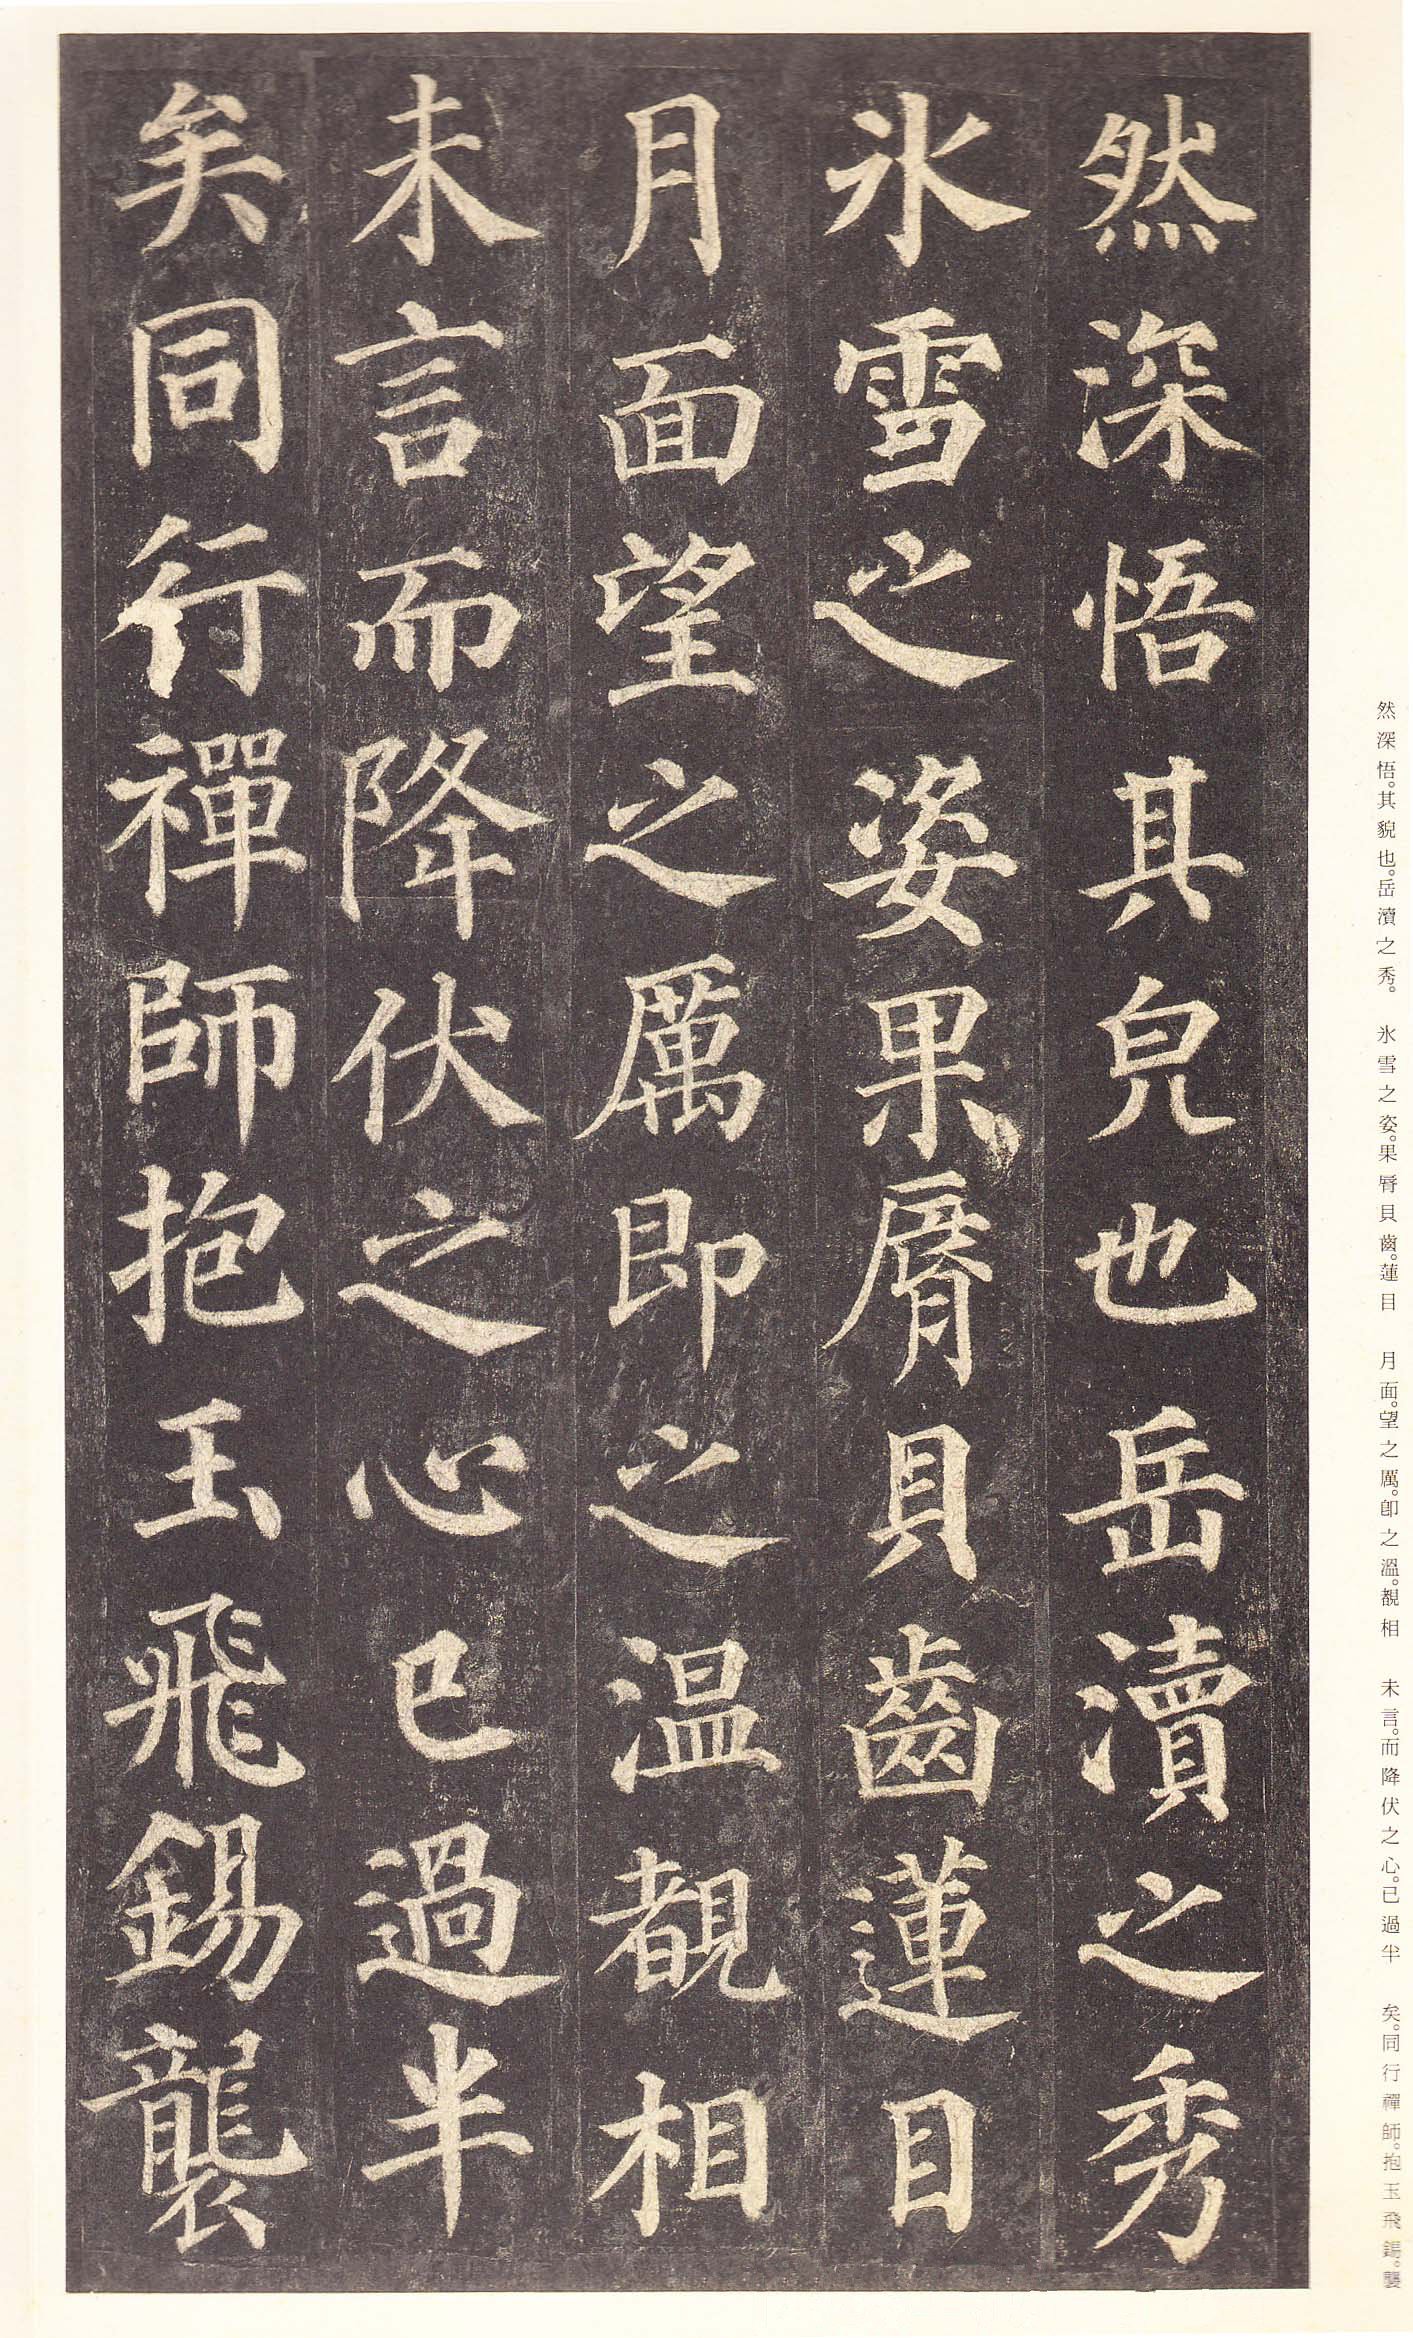 然深悟其皃也岳瀆之秀
氷雪之姿果脣貝齒蓮目
月面望之厲即之温覩相
未言而降伏之心已過半
矣同行禪師抱玉飛錫襲
然深悟。其貌也。岳瀆之秀。　氷雪之姿。果脣貝齒。蓮目　月面。望之厲。卽之溫。覩相　未言。而降伏之心。已過半　矣。同行禪師。抱玉飛錫。襲